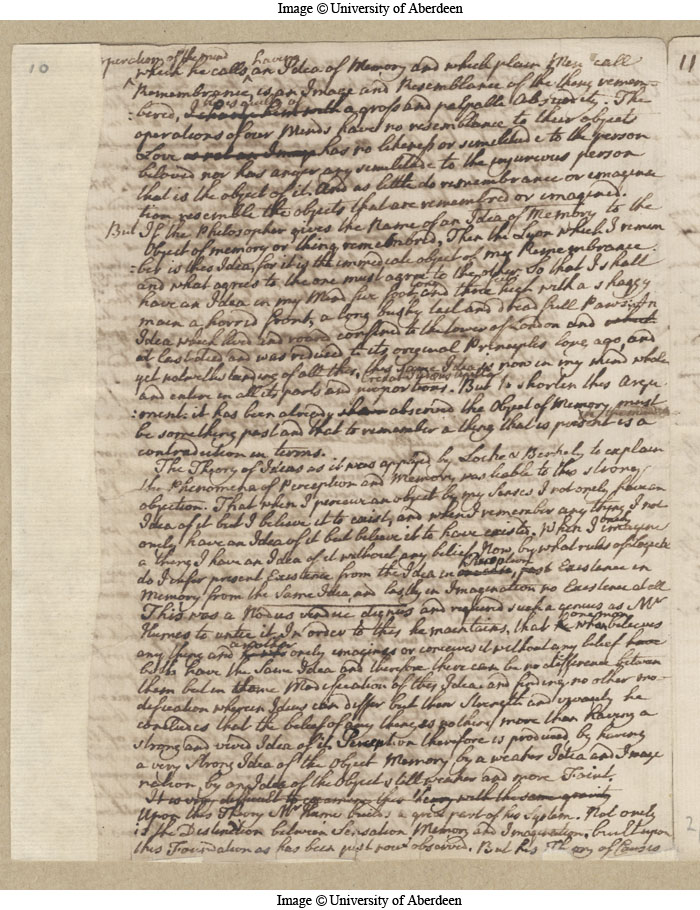 Image © University of Aberdeen
10
11
operation of the mind
which he calls having an Idea of Memory and which plain Men call
Remembrance, is an Image and Resemblance of the thing remem-
:bered, he is guilty of a gross and palpable Absurdity. The
operations of our Minds have no resemblance to their objects
Love has no likeness or similitude to the person
beloved nor has anger any similitude to the injurious person
that is the object of it. And as little do remembrance or imagina
tion resemble the objects that are remembered or imagined.
But If the Philosopher gives the Name of an Idea of Memory to the
Object of memory or thing remembered, Then the Lyon which I remem
ber is this Idea, for it is the immediate object of my Remembrance
and what agrees to the one must agree to the other. So that I shall
have an Idea in my Mind five foot long and three high with a shaggy
main a horrid front, a long bushy tail and dreadfull Paws, an
Idea which lived and roard confined to the tower of London and
at last died and was reduced to its original Principles long ago, and
yet notwithstanding of all this, this same Idea is now in my mind whole
and entire in all its parts and proportions. But to shorten this Argu
:ment: it has been already observed the Object of Memory must
be something past and that to remember a thing that is present is a
contradiction in terms.
The Theory of Ideas as it was applyed by Locke & Berkely to explain
the Phenomena of Perception and Memory was liable to this strong
objection. That when I perceive an object by my Senses I not onely have an
Idea of it but I believe it to exist, and when I remember any thing I not
onely have an Idea of it but believe it to have existed. When I onely imagine
a thing I have an Idea of it without any belief. Now, by what rules of Logick
do I infer present Existence from the Idea in Perception, past Existence in
Memory from the Same Idea, and lastly in Imagination no Existence at all
This was a Nodus vindice dignus and required such a genius as Mr
Humes to untie it. In order to this he maintains, that when one man believes
any thing and another onely imagines or conceives it without any belief
both have the Same Idea and therefore there can be no difference between
them but in some Modification of this Idea: and finding no other mo-
dification wherein Ideas can differ but their Strength and vivacity he
concludes that the belief of any thing is nothing more than having a
strong and vivid Idea of it. Perception therefore is produced by having
a very Strong Idea of the Object Memory by a weaker Idea and Imagi
nation by an Idea of the Object still weaker and more Faint.
It is very difficult to examine this theory with the same gravity
Upon this Theory Mr Hume builds a great part of his System. Not onely
is the Distinction between Sensation Memory and Imagination, built upon
this Foundation as has been just now observed. But his Theory of Causes
2
Image © University of Aberdeen